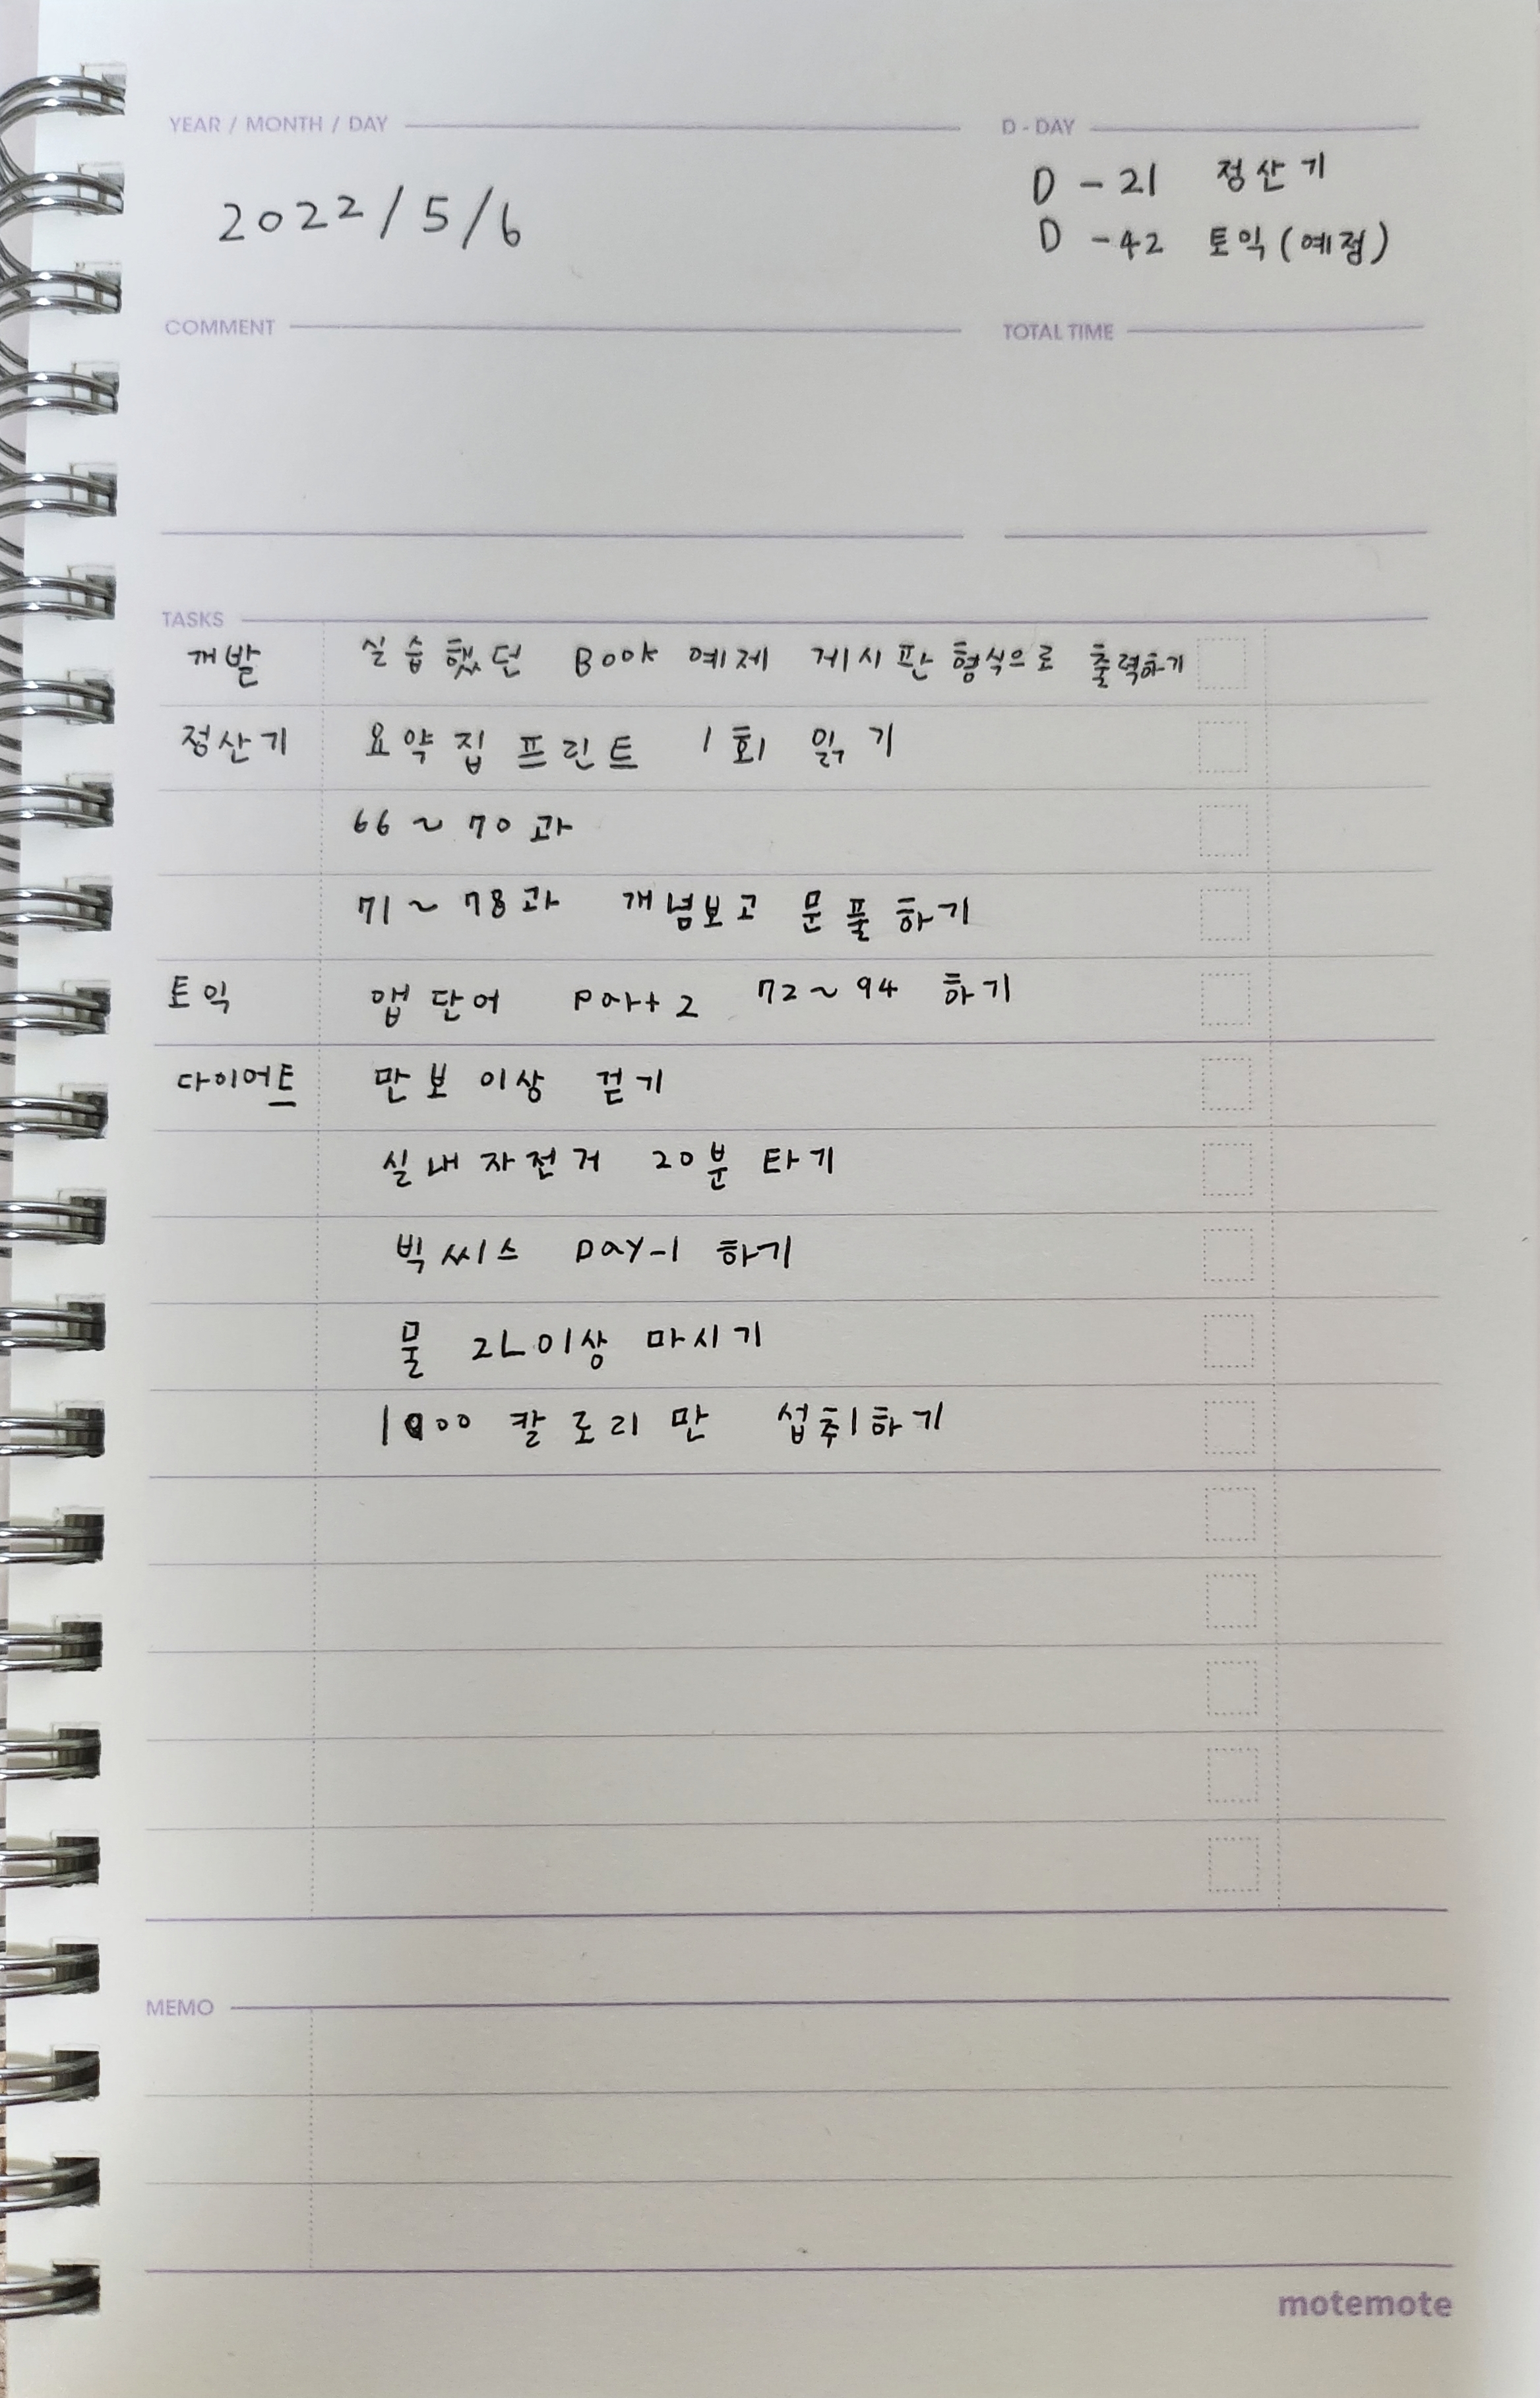 YEAR / MONTH / DAY
2022/5/6
D-DAY
D-21 정산기
D-42 토익(예정)
COMMENT
TOTAL TIME
TASKS
개발 실습했던 Book 예제 게시판 형식으로 출력하기
정산기 요약집 프린트 1회 읽기
66~70과
71~78과 개념보고 문풀하기
토익 앱단어 Part2 72~94 하기
다이어트 만보이상 걷기
실내자전거 20분 타기
빅씨스 Day-1 하기
물 2L이상 마시기
1000 칼로리만 섭취하기
MEMO
motemote